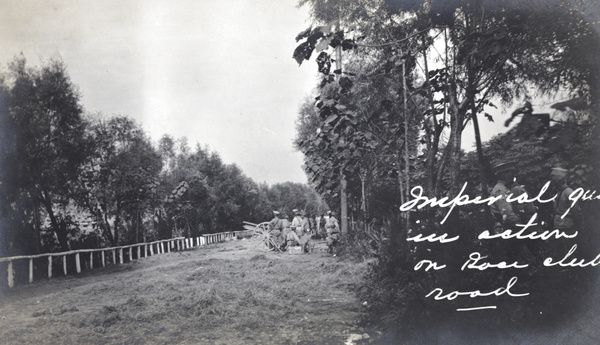 Imperial gu
in action
on Race club
road